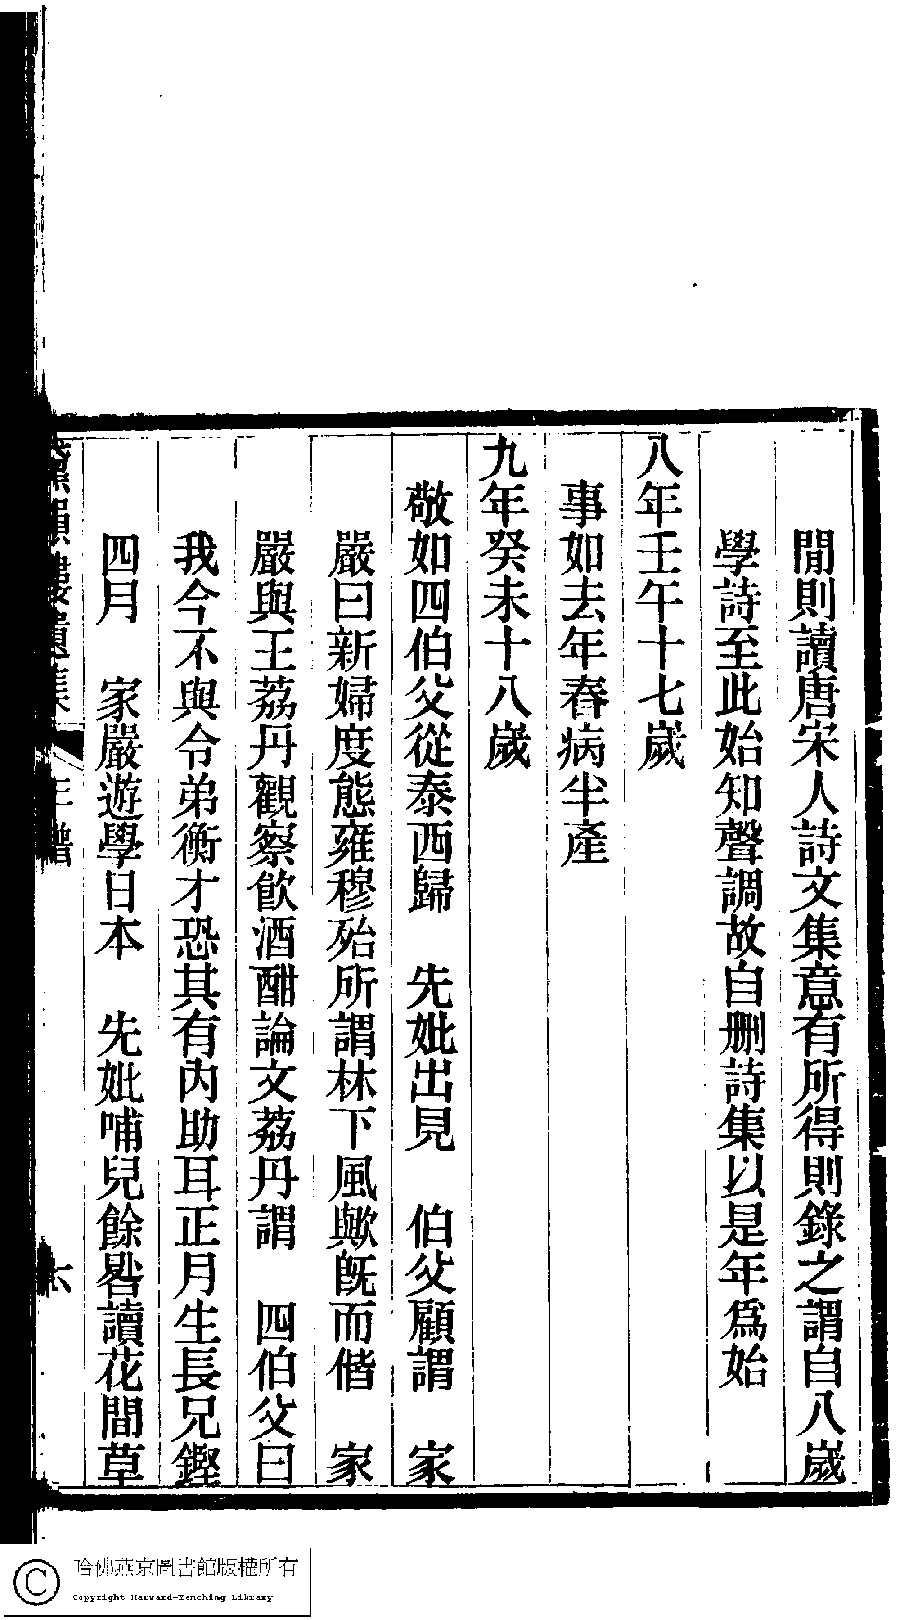 閒則讀唐宋人詩文集意有所得則錄之謂自八歲
學詩至此始知聲調故自刪詩集以是年爲始
八年壬午十七歲
事如去年春病半產
九年癸未十八歲
敬如四伯父從泰西歸　先妣出見　伯父顧謂　家
嚴曰新婦度態雍穆殆所謂林下風歟旣而偕　家
嚴與王荔丹觀察飮酒酣論文荔丹謂　四伯父曰
我今不與令弟衡才恐其有內助耳正月生長兄鏗
四月　家嚴遊學日本　先妣哺兒餘晷讀花間草
樓遺集
年譜
六
哈佛燕京圖書館版權所有
Copyright Harvard-Yenching Library